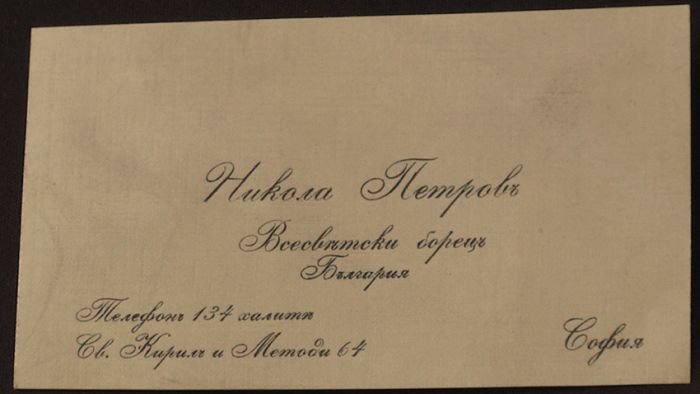 Никола Петровъ
Всесвѣтски борецъ
България
Телефонъ 134 халитѣ
Св. Кирилъ и Методи 64
София